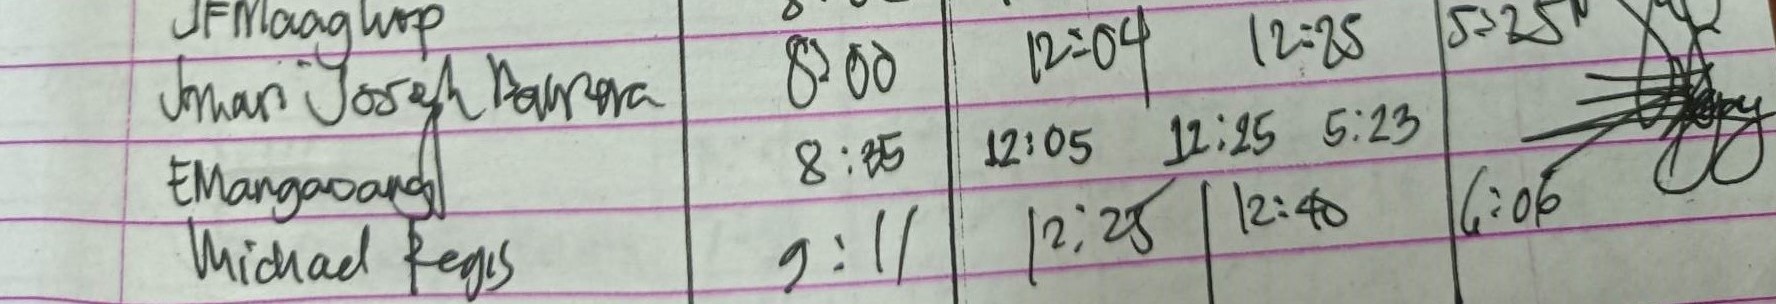 JFMaaghop
Jmari Joseph 8:00 12:04 12:25 5:25
EMangaoang 8:25 12:05 12:25 5:23
Michael Regis 9:11 12:25 12:40 6:06